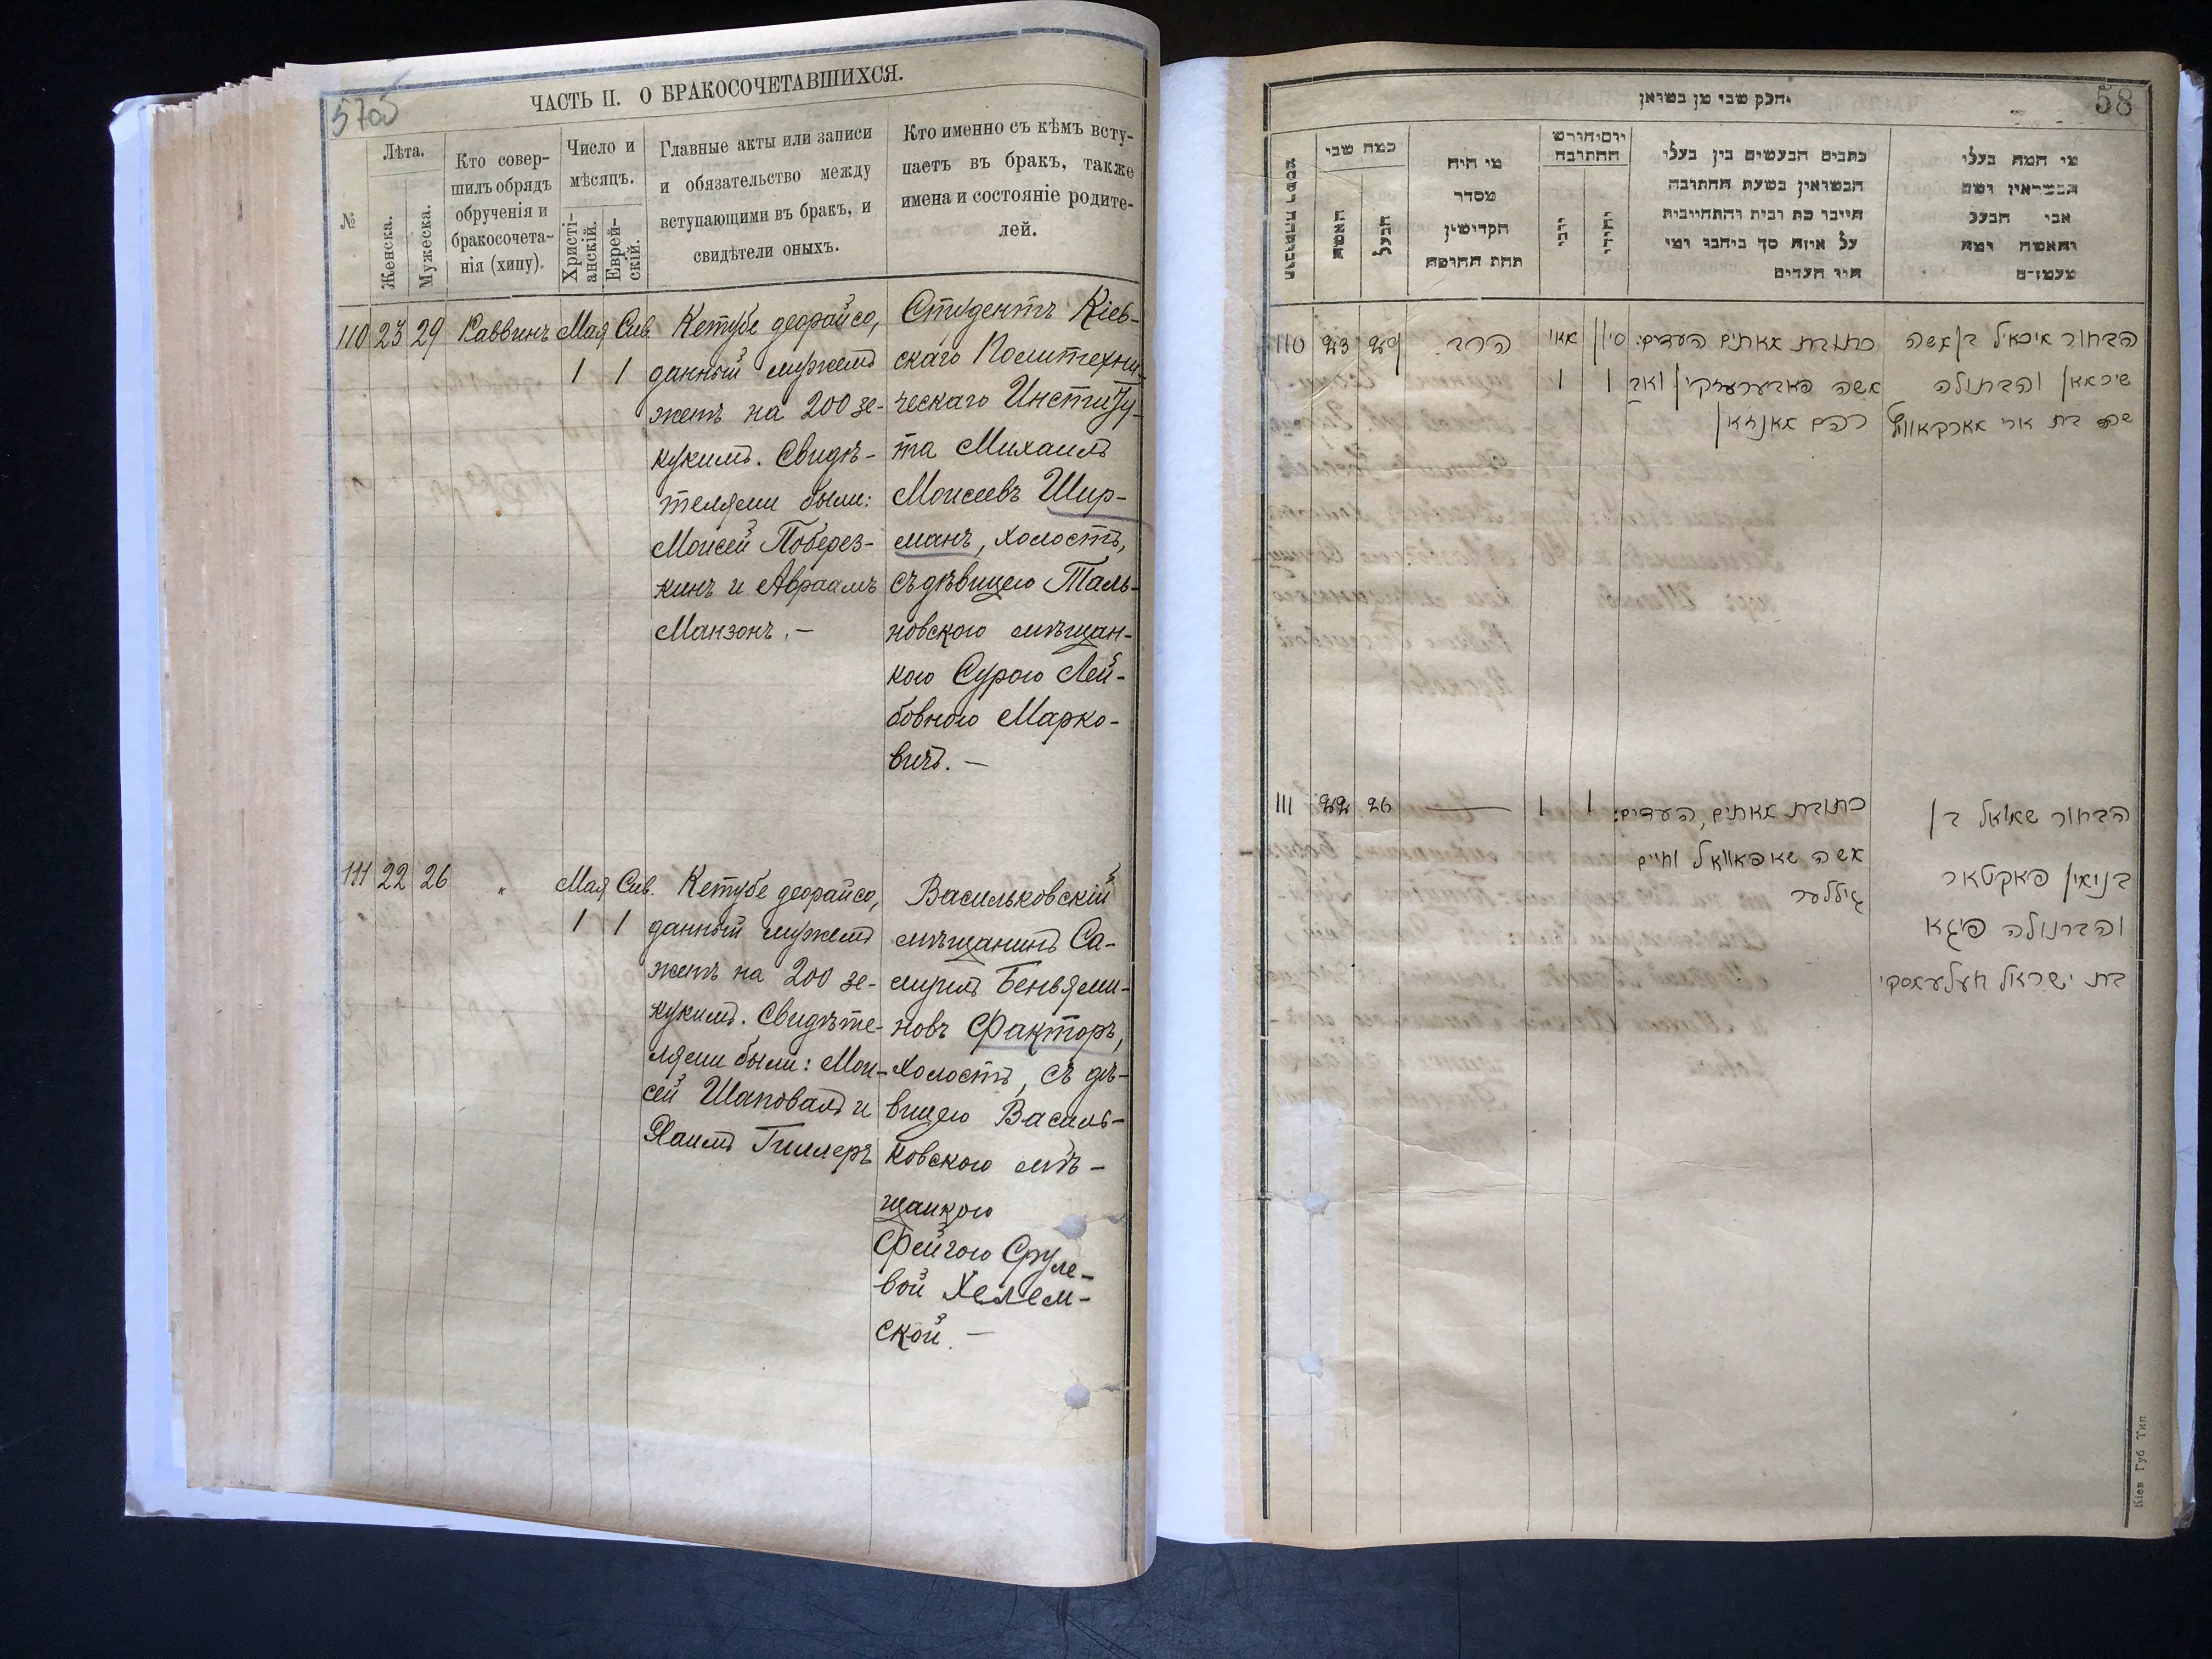 5705
ЧАСТЬ II. О БРАКОСОЧЕТАВШИХСЯ.
№
Лѣта.
Женска.
Мужеска.
Кто совер-
шилъ обрядъ
обрученія и
бракосочета-
нія (хипу).
Число и
мѣсяцъ.
Христі-
анскій.
Еврей-
скій.
Главные акты или записи
и обязательство между
вступающими въ бракъ, и
свидѣтели оныхъ.
Кто именно съ кѣмъ всту-
паетъ въ бракъ, также
имена и состояніе родите-
лей.
110 23 29 Раввинъ Мая Сив.
1 1
Кетубе деорайсо,
данный мужемъ
женѣ на 200 зе-
кукимъ. Свидѣ-
телями были:
Моисей Поберез-
кинъ и Авраамъ
Манзонъ. —
Студентъ Кіев-
скаго Политехни-
ческаго Институ-
та Михаилъ
Моисеевъ Шир-
манъ, холостъ,
съ дѣвицею Таль-
новскою мѣщан-
кою Сурою Лей-
бовною Марко-
вичъ. —
111 22 26 „ Мая Сив.
1 1
Кетубе деорайсо,
данный мужемъ
женѣ на 200 зе-
кукимъ. Свидѣте-
лями были: Мои-
сей Шаповалъ и
Хаимъ Гиллеръ
Васильковскій
мѣщанинъ Са-
муилъ Беньями-
новъ Факторъ,
холостъ, съ дѣ-
вицею Василь-
ковскою мѣ-
щанкою
Фейгою Сруле-
вой Хелем-
ской. —
58
חלק שני מן נשואין
מי המה בעלי
הנשואין ושם
אבי הבעל
והאשה ומה
מעמדם
כתבים הנעשים בין בעלי
הנשואין בשעת החתונה
על איזה סך כיתבו ומי
היו העדים
יום וחודש
החתונה
יהודי
נוצרי
מי היה
מסדר
הקדושין
תחת החופה
כמה שני
הבעל
האשה
110 23 29 הרב מאי סיון
1 1
כתובת מאתים העדים:
משה פאבערעזקין ואב
רהם מאנזאן
הבחור מיכאל בן משה
שירמאן והבתולה
שרה בת ארי מארקאוויץ
111 22 26 — 1 1
כתובת מאתים, העדים:
משה שאפאוואל וחיים
גיללער
הבחור שמואל בן
בנימין פאקטאר
והבתולה פיגא
בת ישראל חעלעמסקי
Кіев Губ Тип